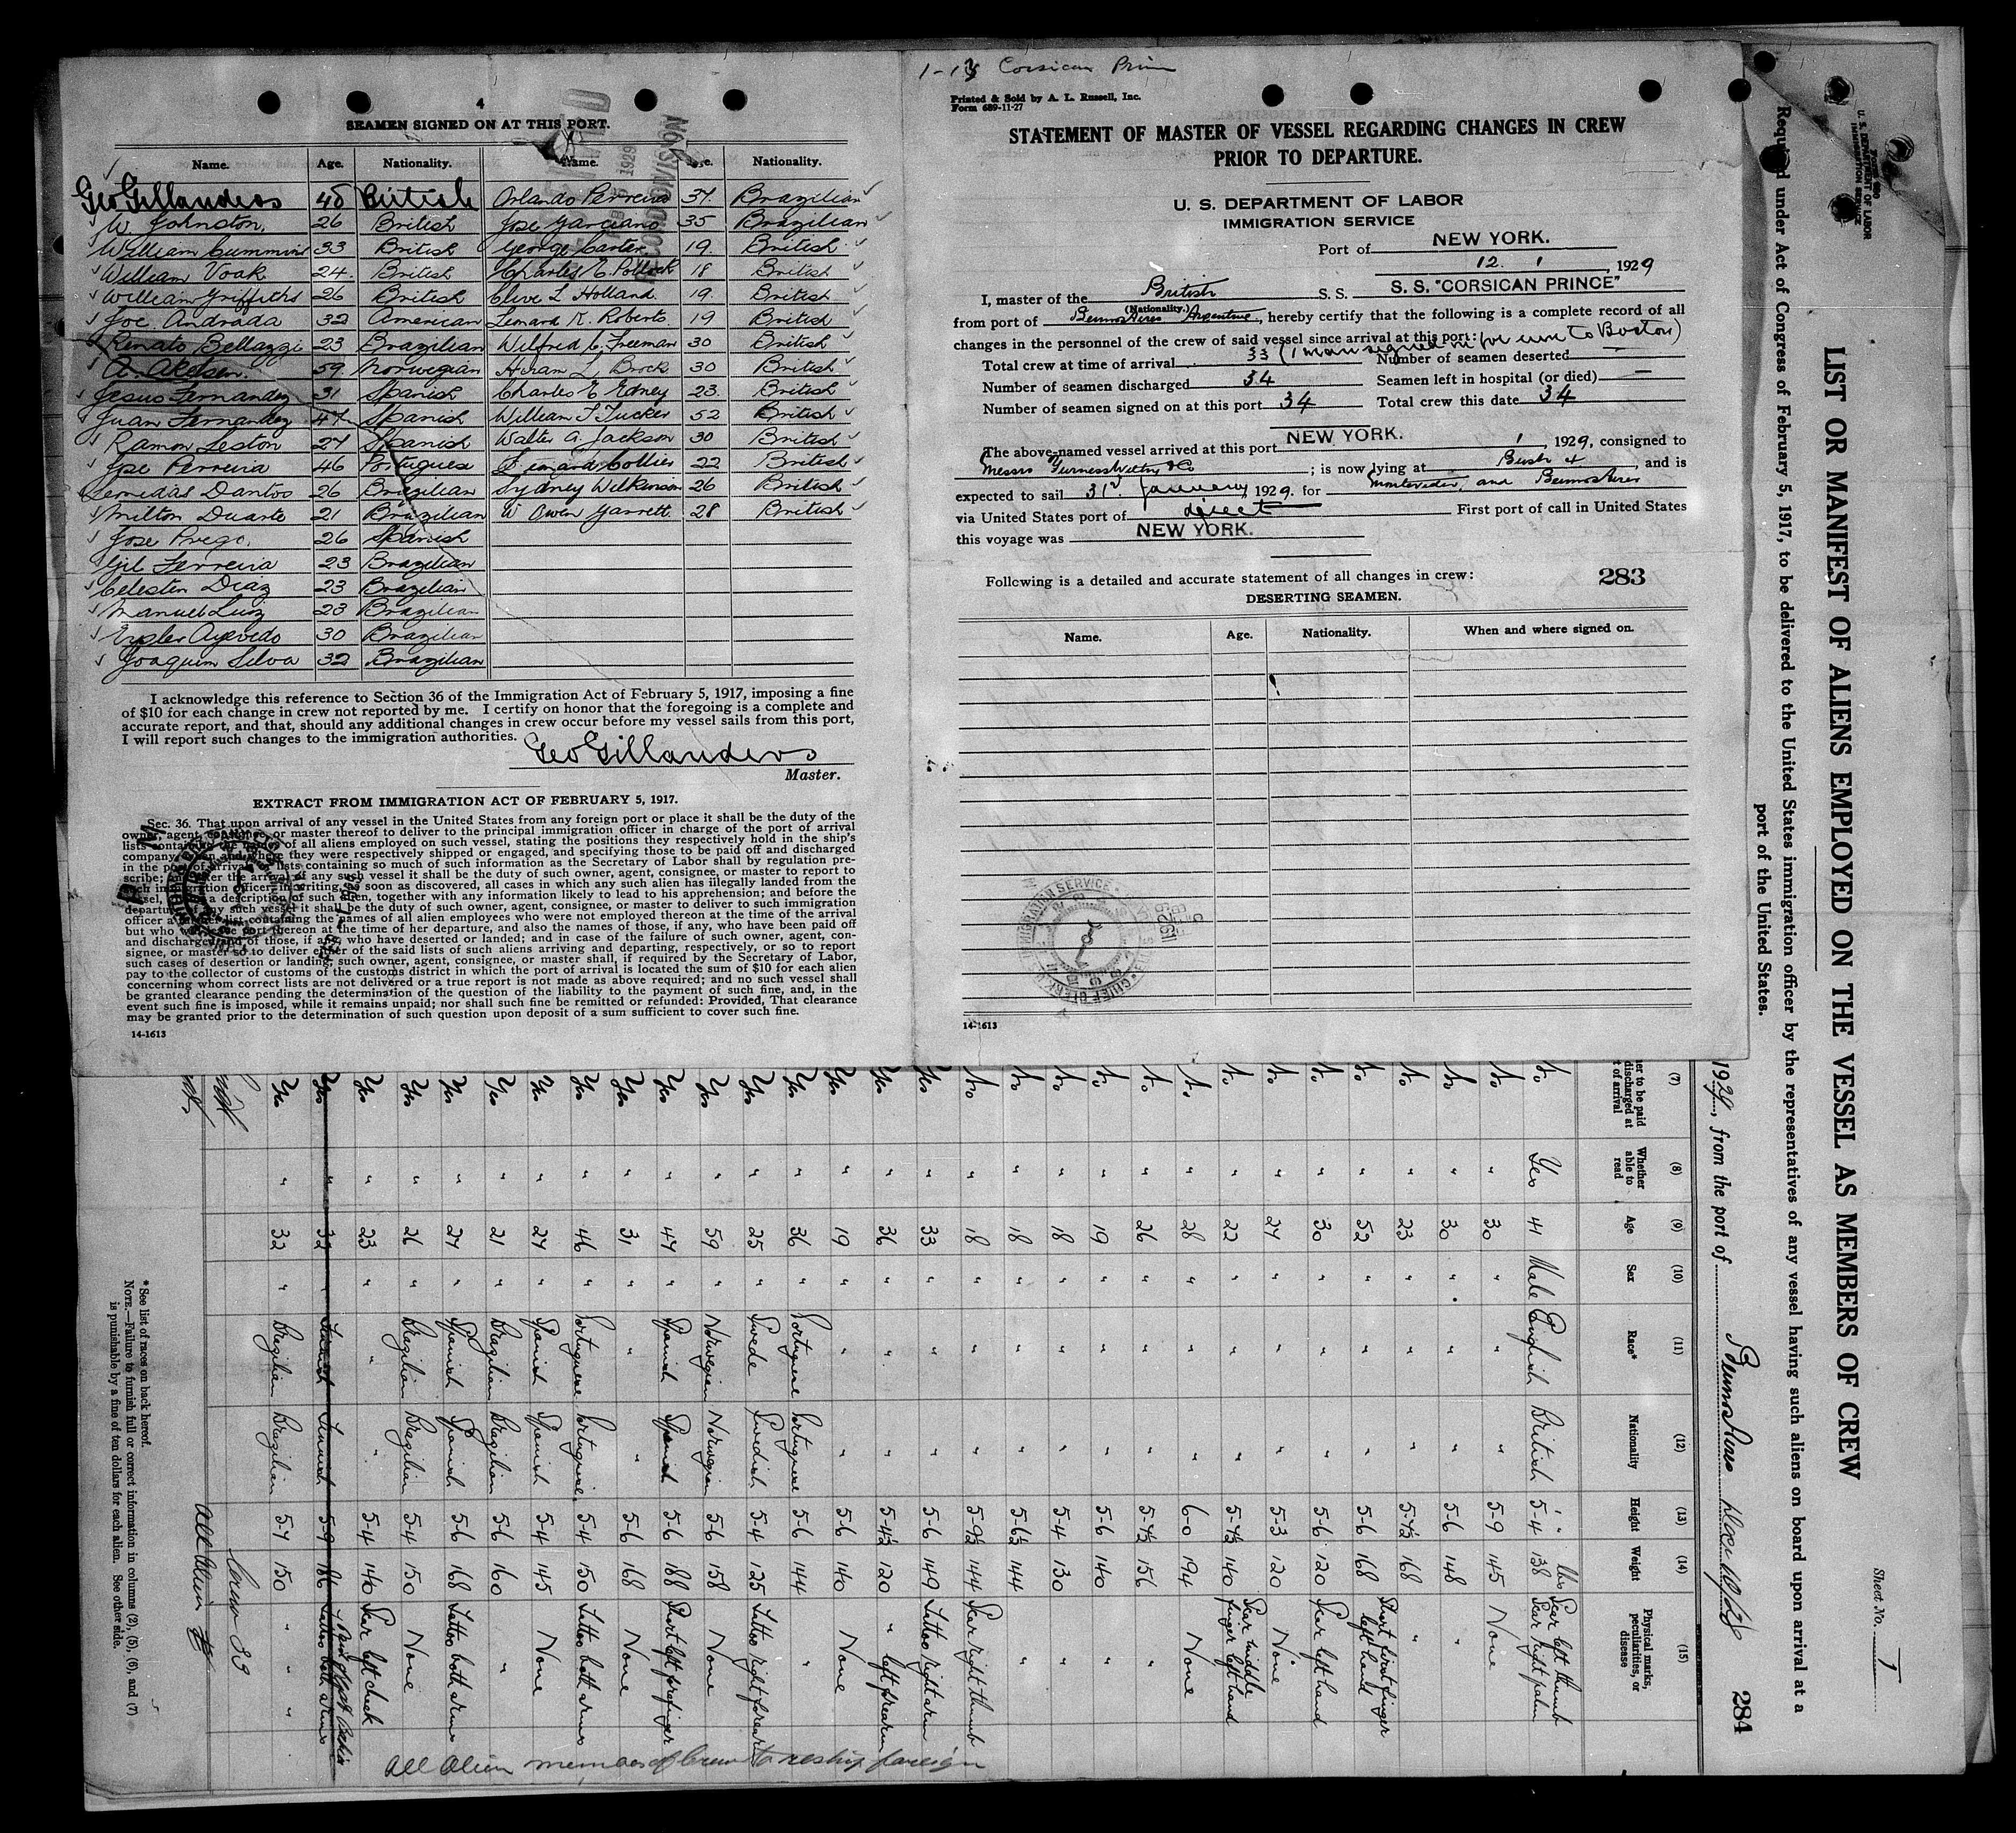 4
SEAMEN SIGNED ON AT THIS PORT.
Name. Age. Nationality. Name. Age. Nationality.
Geo Gillanders 45 British Orlando Perreira 37. Brazilian
W. Johnston. 26 British Jose Garciano 35 Brazilian
William Cummins 33 British George Carter. 19. British
William Voak 24. British Charles E. Pollock 18 British
William Griffiths 26 British Clive L Holland. 19. British
Joe. Andrada 32 American Leonard K. Roberts 19 British
Renato Bellazzi 23 Brazilian Wilfred C. Freeman 30 British
A. Akelsen. 59. Norwegian Hiram L Brock 30 British
Jesus Fernandez 31 Spanish Charles E. Edney 23. British
Juan Fernandez 47 Spanish William T. Tucker 52 British
Ramon Leston 27 Spanish Walter A. Jackson 30 British
Jose Perreira 46 Portuguese Collier 22 British
Dantos 26 Brazilian Sydney Wilkinson 26 British
Milton Duarte 21 Brazilian W Owen Garrett. 28 British
Jose Prego. 26 Spanish
Gil Ferreira 23 Brazilian
Celestin Diaz 23 Brazilian
Manuel Luiz 23 Brazilian
Azevedo 30 Brazilian
Joaquim Silva 32 Brazilian
I acknowledge this reference to Section 36 of the Immigration Act of February 5, 1917, imposing a fine
of $10 for each change in crew not reported by me. I certify on honor that the foregoing is a complete and
accurate report, and that, should any additional changes in crew occur before my vessel sails from this port,
I will report such changes to the immigration authorities.
Geo Gillanders
Master.
EXTRACT FROM IMMIGRATION ACT OF FEBRUARY 5, 1917.
Sec. 36. That upon arrival of any vessel in the United States from any foreign port or place it shall be the duty of the
owner, agent, consignee, or master thereof to deliver to the principal immigration officer in charge of the port of arrival
lists containing the names of all aliens employed on such vessel, stating the positions they respectively hold in the ship's
company, when and where they were respectively shipped or engaged, and specifying those to be paid off and discharged
in the port of arrival; or lists containing so much of such information as the Secretary of Labor shall by regulation pre-
scribe; and after the arrival of any such vessel it shall be the duty of such owner, agent, consignee, or master to report to
such immigration officer, in writing, as soon as discovered, all cases in which any such alien has illegally landed from the
vessel, giving a description of such alien, together with any information likely to lead to his apprehension; and before the
departure of any such vessel it shall be the duty of such owner, agent, consignee, or master to deliver to such immigration
officer a further list containing the names of all alien employees who were not employed thereon at the time of the arrival
but who will leave port thereon at the time of her departure, and also the names of those, if any, who have been paid off
and discharged, and of those, if any, who have deserted or landed; and in case of the failure of such owner, agent, con-
signee, or master so to deliver either of the said lists of such aliens arriving and departing, respectively, or so to report
such cases of desertion or landing, such owner, agent, consignee, or master shall, if required by the Secretary of Labor,
pay to the collector of customs of the customs district in which the port of arrival is located the sum of $10 for each alien
concerning whom correct lists are not delivered or a true report is not made as above required; and no such vessel shall
be granted clearance pending the determination of the question of the liability to the payment of such fine, and, in the
event such fine is imposed, while it remains unpaid; nor shall such fine be remitted or refunded: Provided, That clearance
may be granted prior to the determination of such question upon deposit of a sum sufficient to cover such fine.
14-1613
Corsican Prince
Printed & Sold by A. L. Russell, Inc.
Form 689-11-27
STATEMENT OF MASTER OF VESSEL REGARDING CHANGES IN CREW
PRIOR TO DEPARTURE.
U. S. DEPARTMENT OF LABOR
IMMIGRATION SERVICE
Port of NEW YORK.
12. 1, 1929
I, master of the British S. S. S.S. "CORSICAN PRINCE"
(Nationality.)
from port of Buenos Aires Argentine, hereby certify that the following is a complete record of all
changes in the personnel of the crew of said vessel since arrival at this port:
Total crew at time of arrival 33 (1 man signed on for run to Boston) Number of seamen deserted —
Number of seamen discharged 34 Seamen left in hospital (or died) —
Number of seamen signed on at this port 34 Total crew this date 34
The above-named vessel arrived at this port NEW YORK. 1, 1929, consigned to
Messrs Furness Withy & Co; is now lying at Bush 4, and is
expected to sail 31st January, 1929. for Montevideo, and Buenos Aires
via United States port of direct First port of call in United States
this voyage was NEW YORK.
Following is a detailed and accurate statement of all changes in crew: 283
DESERTING SEAMEN.
Name. Age. Nationality. When and where signed on.
14-1613
U. S. DEPARTMENT OF LABOR
IMMIGRATION SERVICE
Sheet No. 1
LIST OR MANIFEST OF ALIENS EMPLOYED ON THE VESSEL AS MEMBERS OF CREW
Required under Act of Congress of February 5, 1917, to be delivered to the United States immigration officer by the representatives of any vessel having such aliens on board upon arrival at a
port of the United States.
284
1929, from the port of Buenos Aires
(7) (8) (9) (10) (11) (12) (13) (14) (15)
Whether able to read Age Sex Race* Nationality Height Weight Physical marks, peculiarities, or disease
No Yes 41 Male English British 5-4 138 Scar left thumb Scar right palm
No " 30 " " " 5-9 145 None
No " 30 " " " 5-6 148 "
No " 23 " " " 5-7½ 168 "
No " 52 " " " 5-6 168 Short first finger left hand
No " 30 " " " 5-6 120 Scar left hand
No " 27 " " " 5-3 120 None
No " 22 " " " 5-7½ 140 Scar middle finger left hand
No " 28 " " " 6-0 194 None
No " 26 " " " 5-7½ 156 "
No " 19 " " " 5-6 140 "
No " 18 " " " 5-4 130 "
No " 18 " " " 5-6½ 144 "
No " 18 " " " 5-9½ 144 Scar right thumb
Yes " 33 " " " 5-6 149 Tattoo right arm
Yes " 36 " " " 5-4½ 120 " left forearm
Yes " 19 " " " 5-6 140 None
Yes " 36 " Portuguese Portuguese 5-6 144 "
Yes " 25 " Swede Swedish 5-4 125 Tattoo right forearm
Yes " 59 " Norwegian Norwegian 5-6 158 None
Yes " 47 " Spanish Spanish 5-6 188 Short left forefinger
Yes " 31 " " " 5-6 168 None
Yes " 46 " Portuguese Portuguese 5-4 150 Tattoo both arms
Yes " 27 " Spanish Spanish 5-4 145 None
Yes " 21 " Brazilian Brazilian 5-6 160 "
Yes " 27 " Spanish Spanish 5-6 168 Tattoo both arms
Yes " 26 " Brazilian Brazilian 5-4 150 None
Yes " 23 " " " 5-4 140 Scar left cheek
Yes " 32 " 5-9 186 Tattoo both arms
Yes " 32 " Brazilian Brazilian 5-7 150 " "
All alien members of crew to reship foreign
* See list of races on back hereof.
NOTE.—Failure to furnish full or correct information in columns (2), (5), (6), and (7)
is punishable by a fine of ten dollars for each alien. See other side.